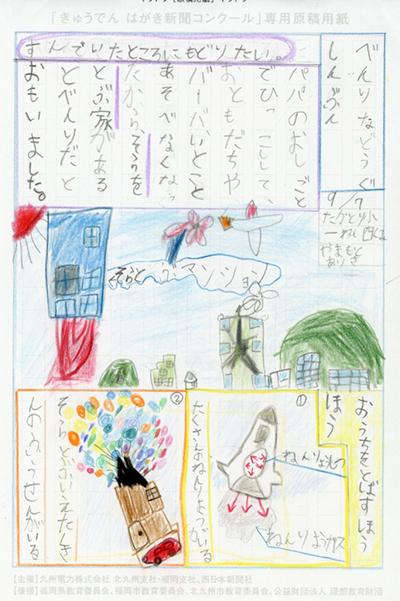 「きゅうでん はがき新聞コンクール」専用原稿用紙
べんりなどうぐ
しんぶん
9/7
たかとり小
一ねん
やまもと
すんでいたところにもどりたい。
パパのおしごと
でひっこしして、
おともだちや
バーバ、いとこと
あそべなくなっ
たから、そらを
とぶ家がある
とべんりだと
おもいました。
そらとぶマンション
おうちをとばすほう
ほう
①
ねんりょう
ねんりょうガス
たくさんのねんりょうつかいる
②
そらをとぶ
ふうせんがいる
【主催】九州電力株式会社 北九州支社・福岡支社、西日本新聞社
【後援】福岡県教育委員会、福岡市教育委員会、北九州市教育委員会、公益財団法人 理想教育財団